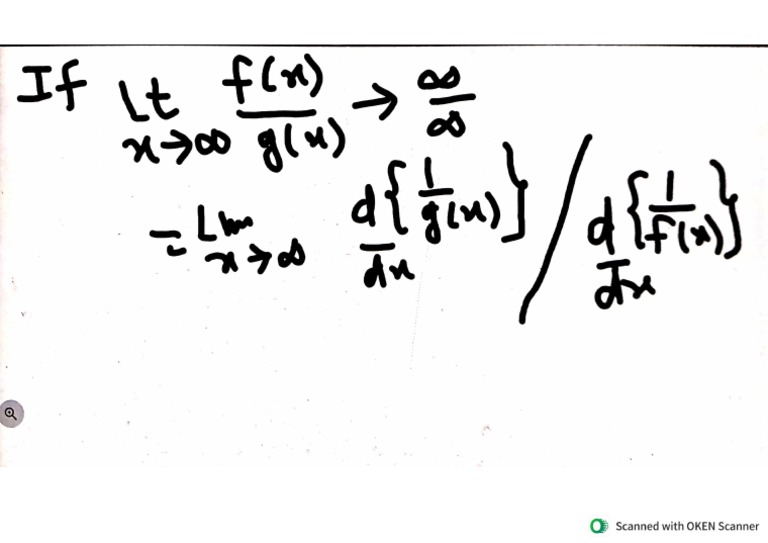 If Lt x→∞ f(x)/g(x) → ∞/∞
= Lim x→∞ d/dx {1/g(x)} / d/dx {1/f(x)}
Scanned with OKEN Scanner